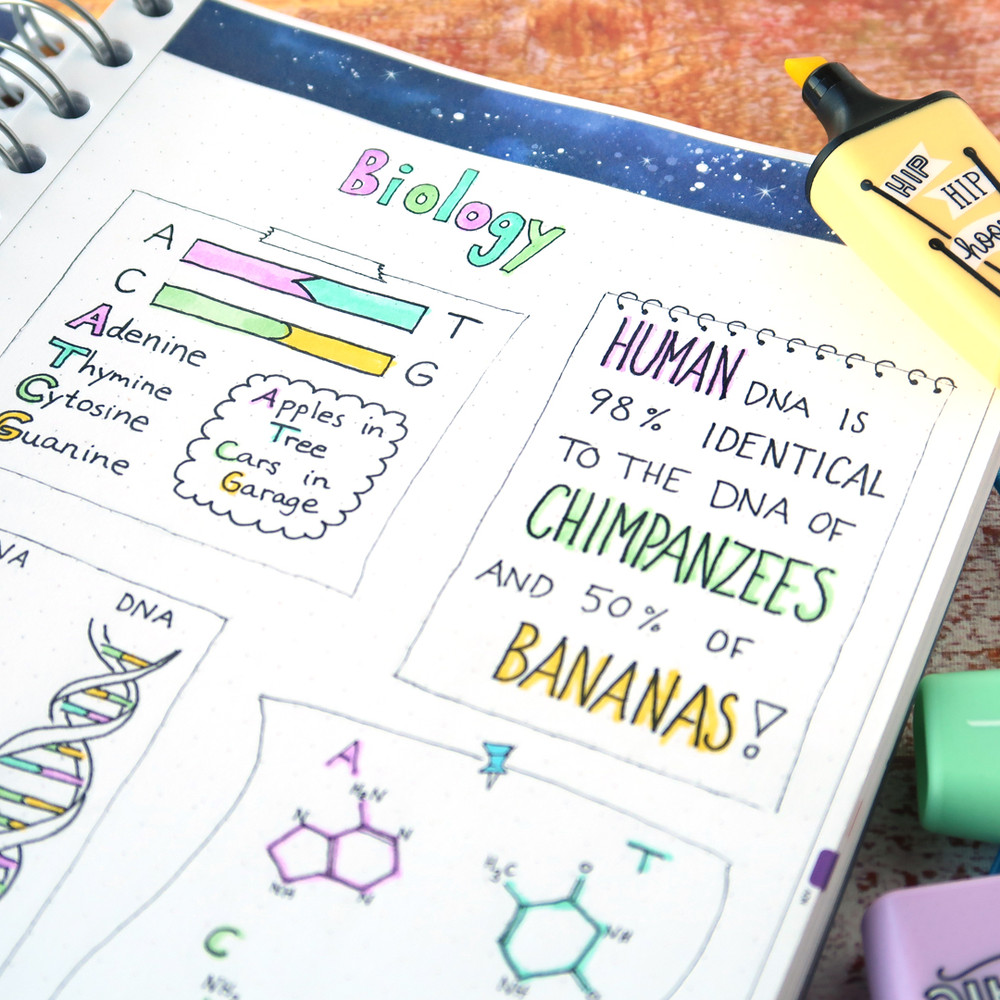 Biology
A
T
C
G
Adenine
Thymine
Cytosine
Guanine
Apples in
Tree
Cars in
Garage
HUMAN DNA IS
98% IDENTICAL
TO THE DNA OF
CHIMPANZEES
AND 50% OF
BANANAS!
DNA
A
H₂N
N
N
NH
N
T
H₃C
O
NH
NH
O
C
NH₂
HIP
HIP